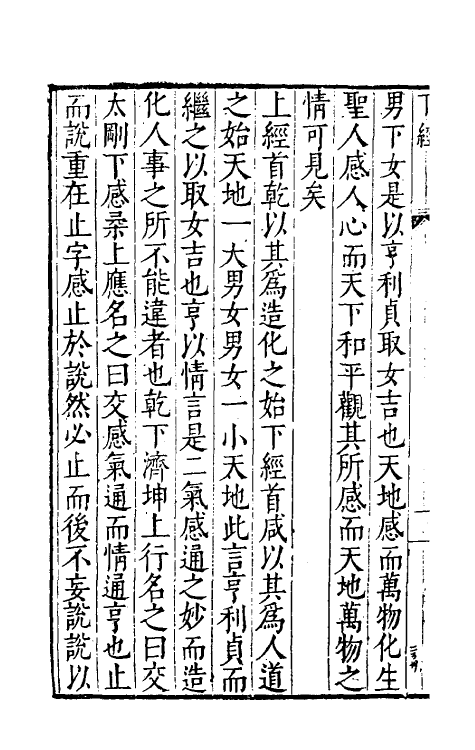 下經
男下女是以亨利貞取女吉也天地感而萬物化生
聖人感人心而天下和平觀其所感而天地萬物之
情可見矣
上經首乾以其爲造化之始下經首咸以其爲人道
之始天地一大男女男女一小天地此言亨利貞而
繼之以取女吉也亨以情言是二氣感通之妙而造
化人事之所不能違者也乾下濟坤上行名之曰交
太剛下感柔上應名之曰交感氣通而情通亨也止
而說重在止字感止於說然必止而後不妄說說以